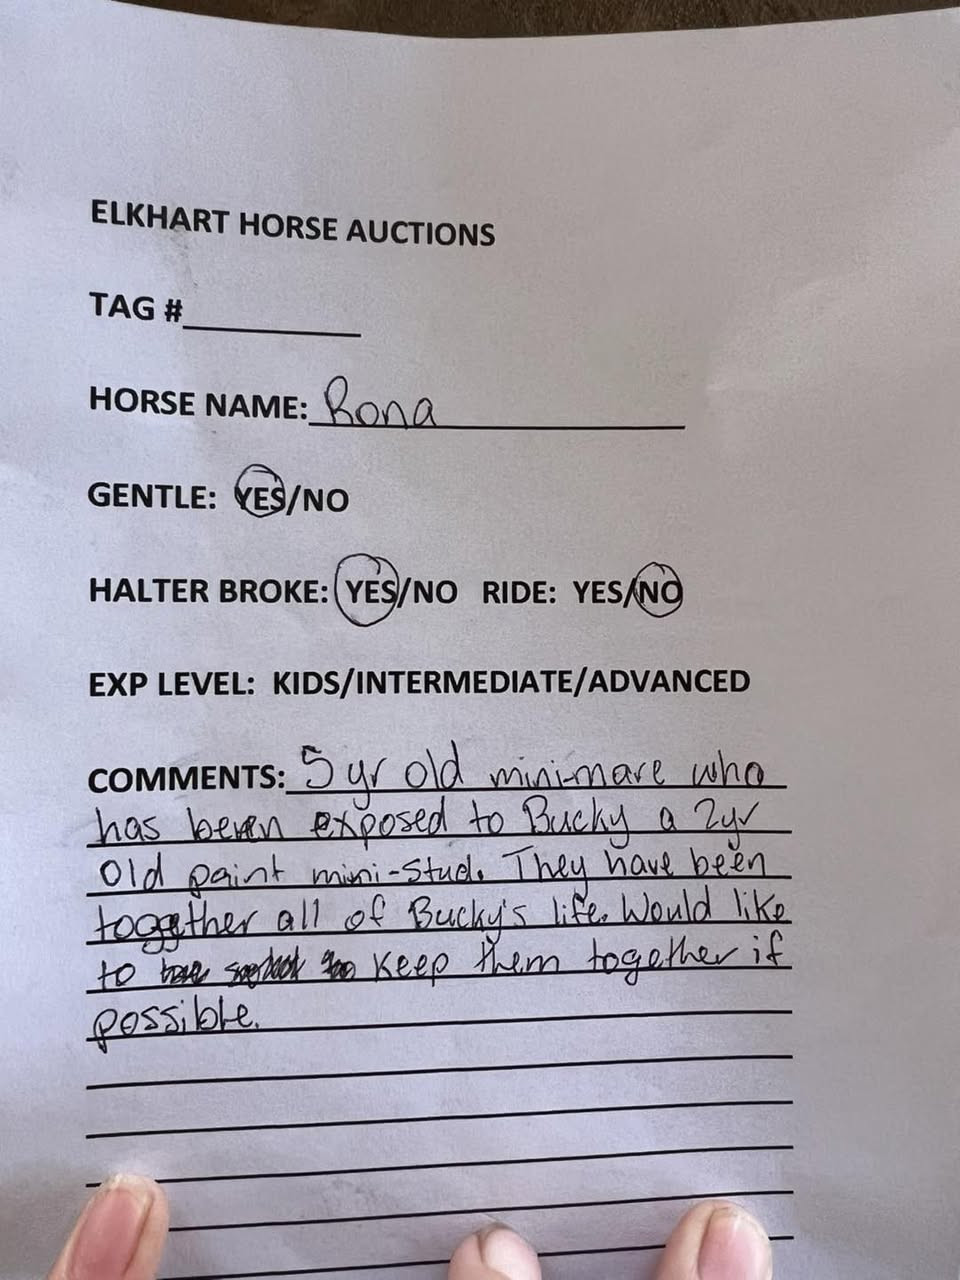 ELKHART HORSE AUCTIONS
TAG #
HORSE NAME: Rona
GENTLE: YES/NO
HALTER BROKE: YES/NO RIDE: YES/NO
EXP LEVEL: KIDS/INTERMEDIATE/ADVANCED
COMMENTS: 5 yr old mini-mare who
has been exposed to Bucky a 2yr
old paint mini-stud. They have been
together all of Bucky's life. Would like
to keep them together if
possible.